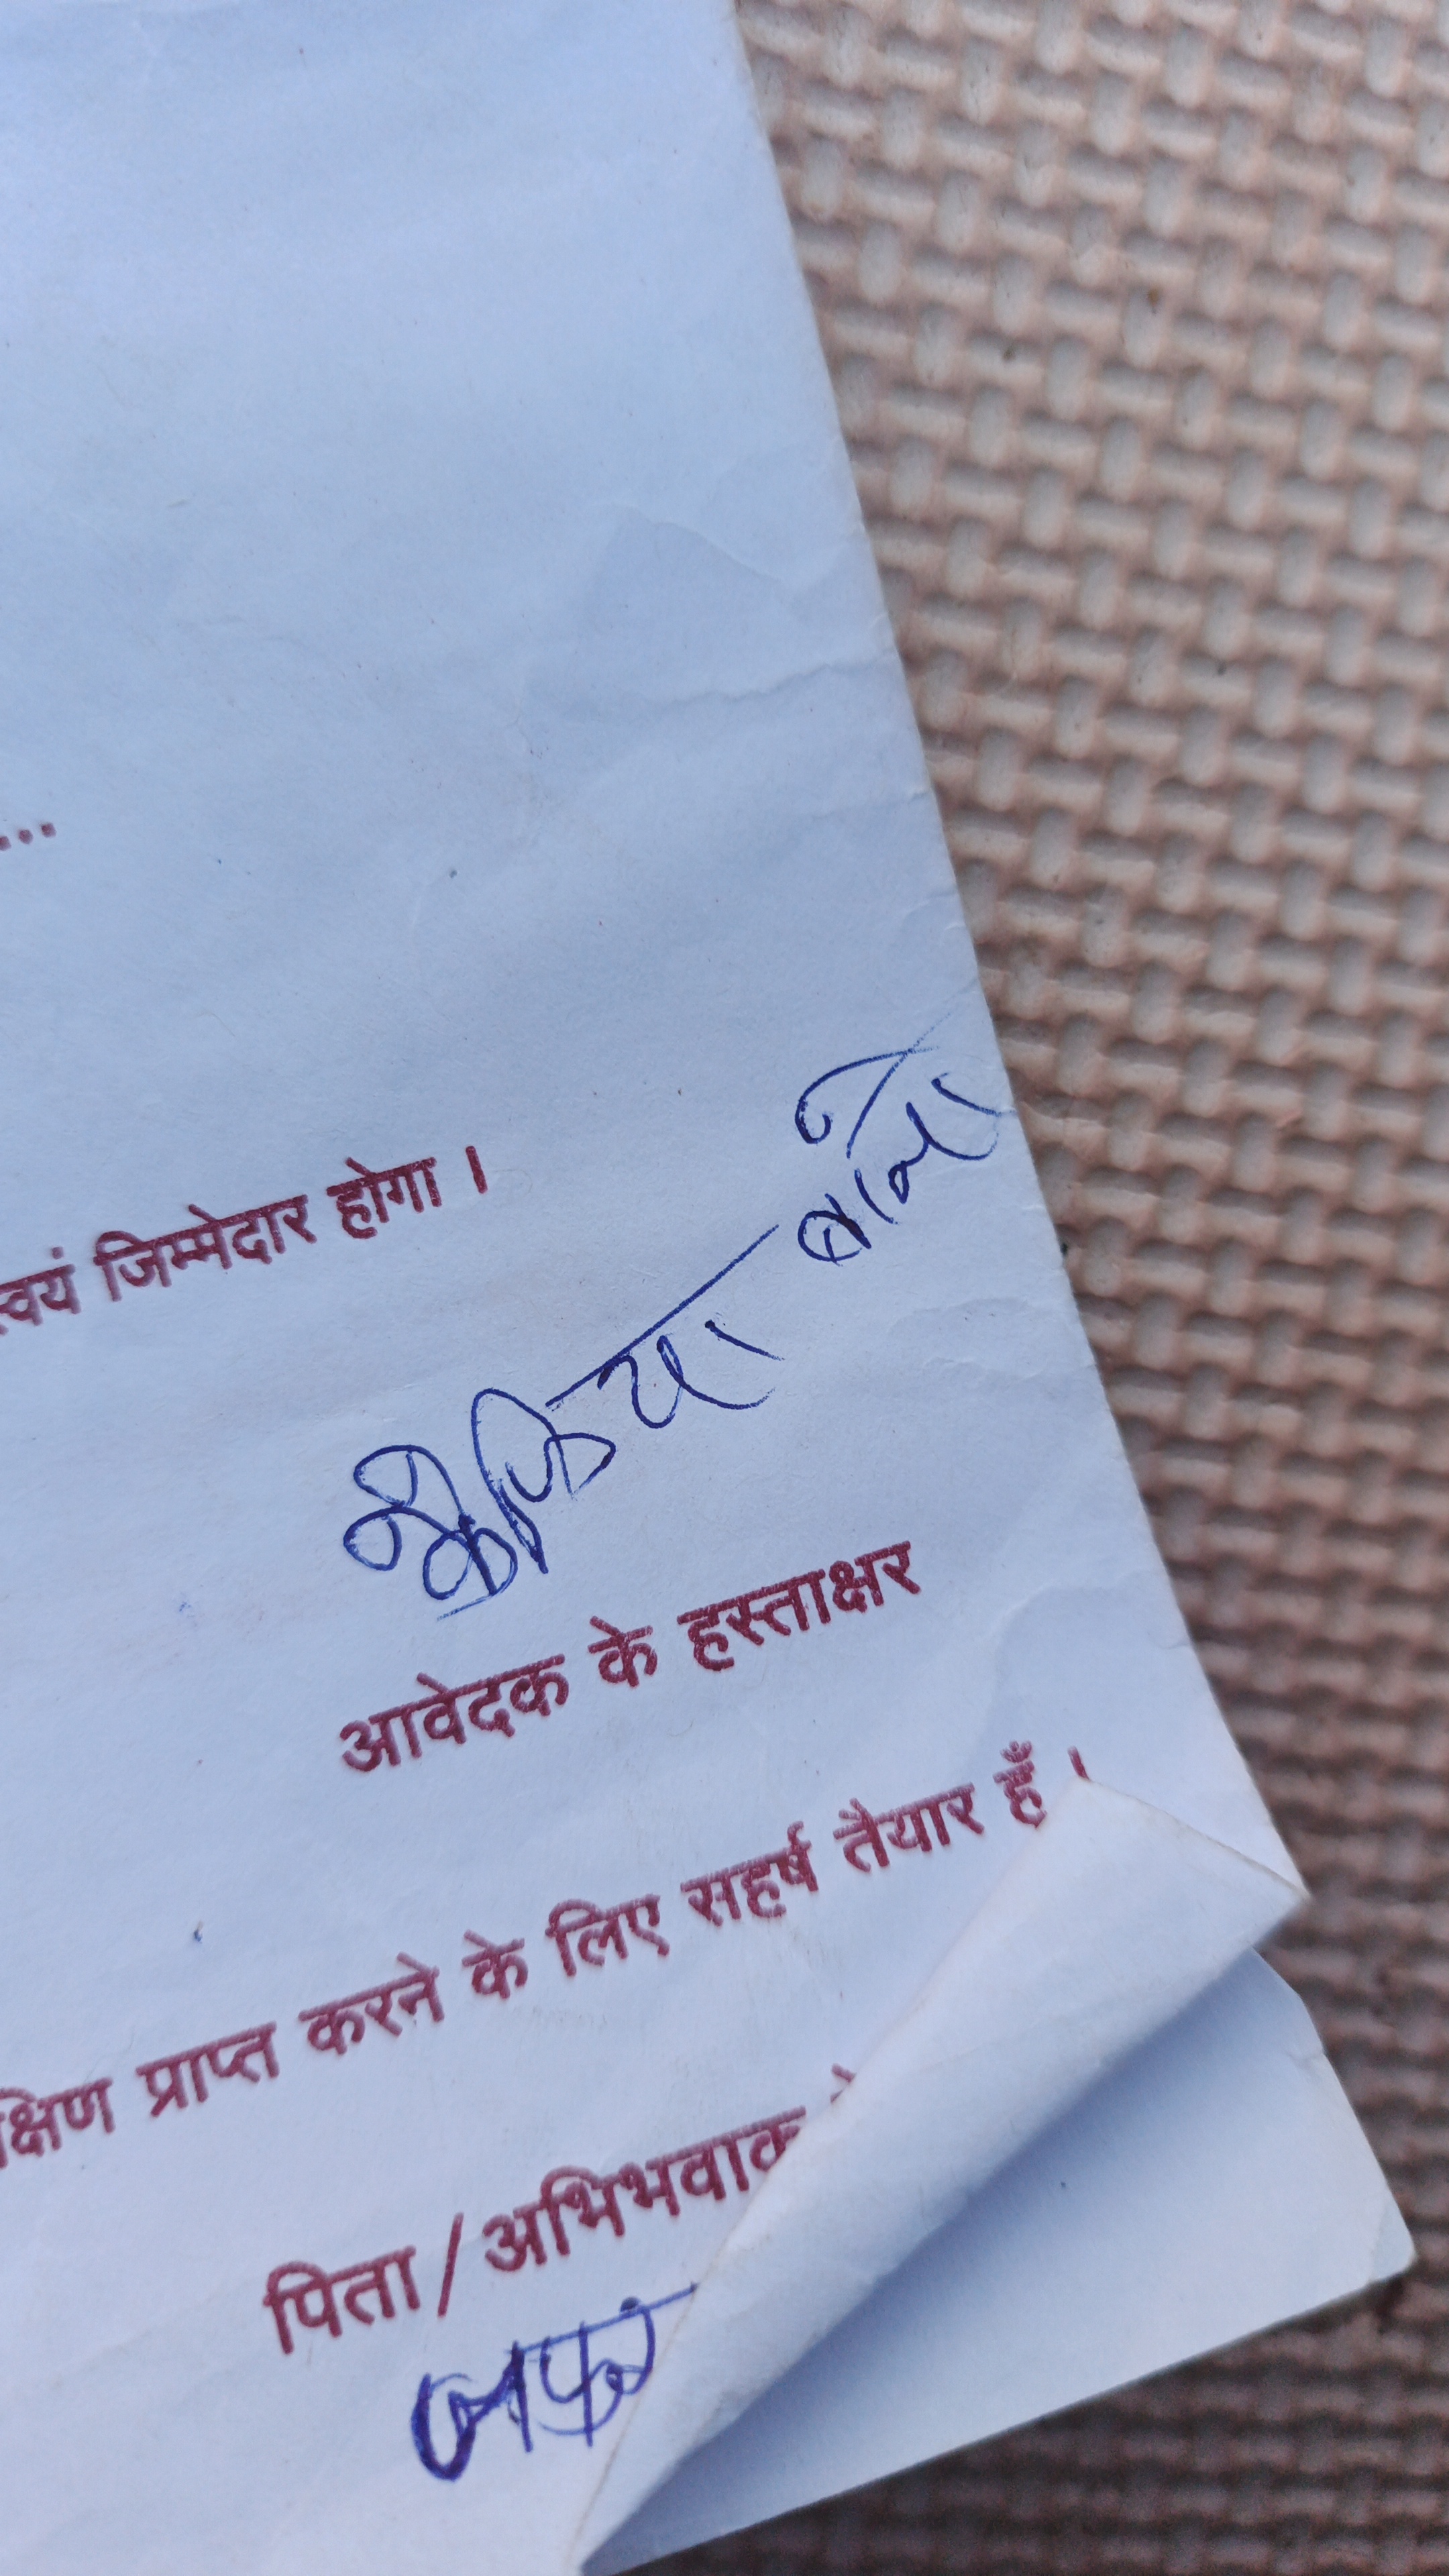 ...
स्वयं जिम्मेदार होगा ।
बानो
आवेदक के हस्ताक्षर
क्षिण प्राप्त करने के लिए सहर्ष तैयार हूँ ।
पिता/अभिभवाक